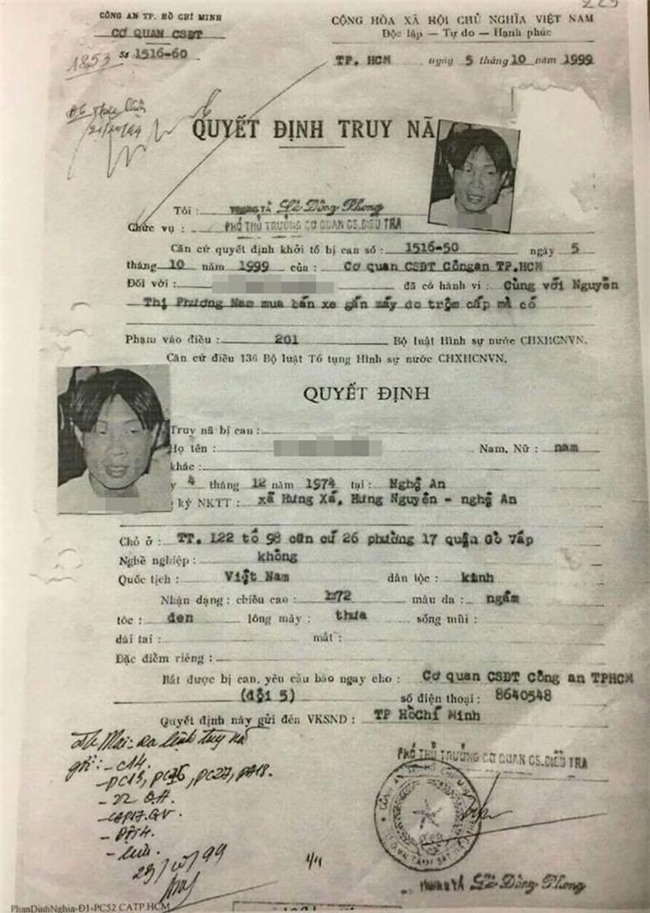 CÔNG AN TP. HỒ CHÍ MINH
CƠ QUAN CSĐT
Số 1516-60
1853
CỘNG HÒA XÃ HỘI CHỦ NGHĨA VIỆT NAM
Độc lập — Tự do — Hạnh phúc
TP. HCM ngày 5 tháng 10 năm 1999
QUYẾT ĐỊNH TRUY NÃ
Tôi : TRUNG TÁ Lê Đông Phong
Chức vụ : PHÓ THỦ TRƯỞNG CƠ QUAN CS.ĐIỀU TRA
Căn cứ quyết định khởi tố bị can số : 1516-50 ngày 5
tháng 10 năm 1999 của : Cơ quan CSĐT Côngan TP.HCM
Đối với : đã có hành vi : Cùng với Nguyễn
Thị Phương Nam mua bán xe gắn máy do trộm cắp mà có
Phạm vào điều : 201 Bộ luật Hình sự nước CHXHCNVN.
Căn cứ điều 136 Bộ luật Tố tụng Hình sự nước CHXHCNVN.
QUYẾT ĐỊNH
Truy nã bị can :
Họ tên : Nam, Nữ : nam
khác :
y 4 tháng 12 năm 1974 tại : Nghệ An
ký NKTT : xã Hưng Xá, Hưng Nguyên - nghệ An
Chỗ ở : TT. 122 tổ 98 căn cứ 26 phường 17 quận Gò Vấp
Nghề nghiệp : không
Quốc tịch : Việt Nam dân tộc : kinh
Nhận dạng : chiều cao : 1m72 màu da : ngăm
tóc : đen lông mày : thưa sống mũi :
dái tai : mắt :
Đặc điểm riêng :
Bắt được bị can, yêu cầu báo ngay cho : Cơ quan CSĐT Công an TPHCM
(đội 5) số điện thoại : 8640548
Quyết định này gửi đến VKSND : TP HồChí Minh
PHÓ THỦ TRƯỞNG CƠ QUAN CS.ĐIỀU TRA
- C14.
- PC13, PC16, PC27, PA18.
29/10/99
TRUNG TÁ Lê Đông Phong
PhanDinhNghia-Đ1-PC52 CATP.HCM